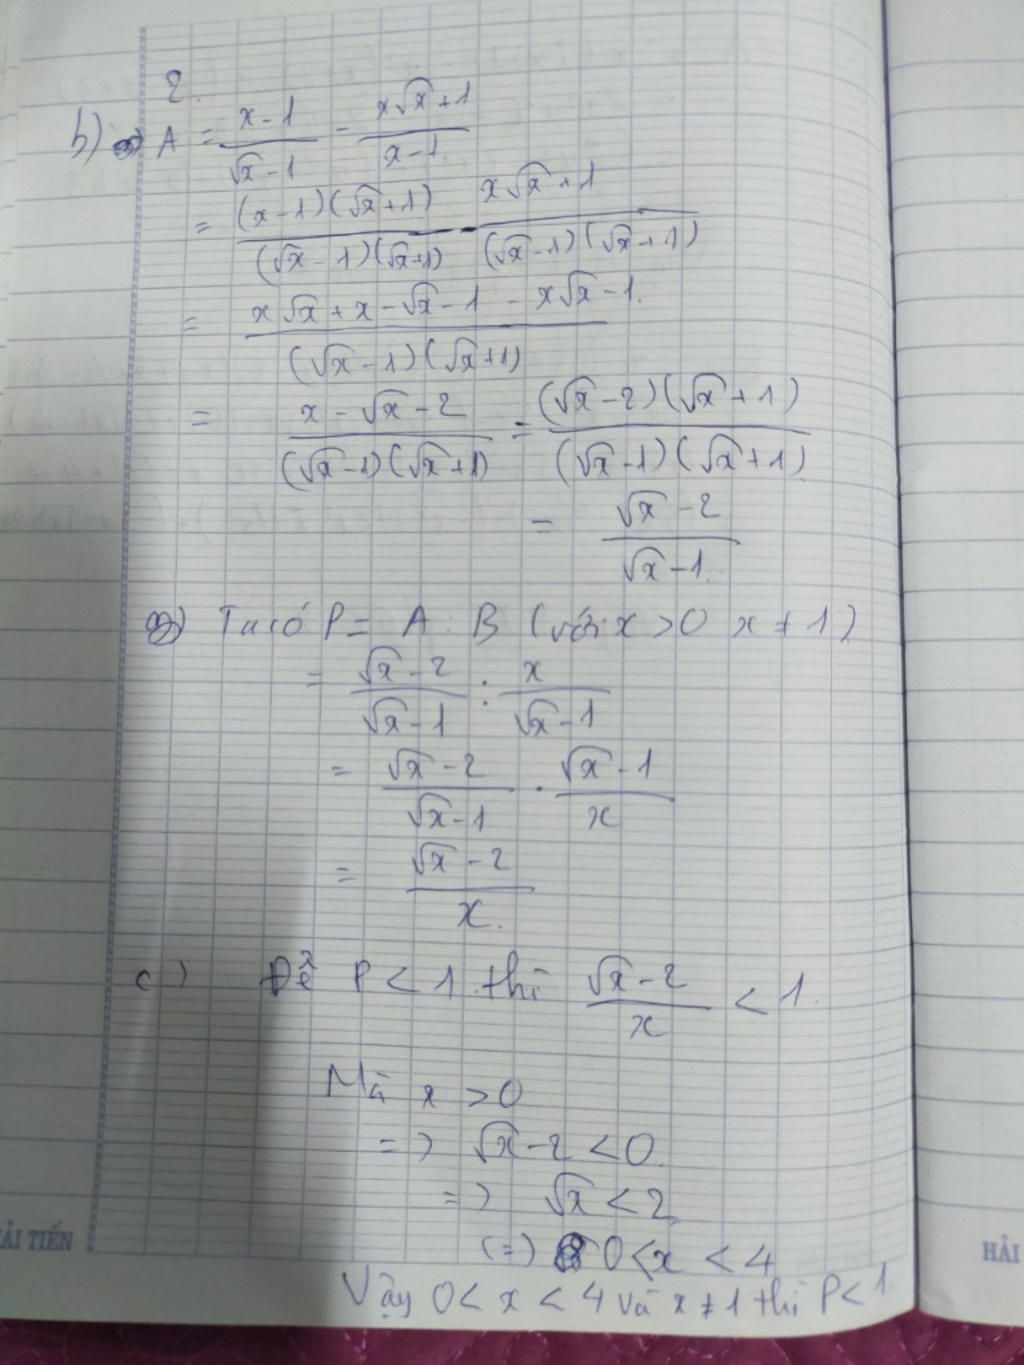 2.
b) A = \frac{x-1}{\sqrt{x}-1} - \frac{x\sqrt{x}+1}{x-1}
= \frac{(x-1)(\sqrt{x}+1)}{(\sqrt{x}-1)(\sqrt{x}+1)} - \frac{x\sqrt{x}+1}{(\sqrt{x}-1)(\sqrt{x}+1)}
= \frac{x\sqrt{x}+x-\sqrt{x}-1-x\sqrt{x}-1.}{(\sqrt{x}-1)(\sqrt{x}+1)}
= \frac{x-\sqrt{x}-2}{(\sqrt{x}-1)(\sqrt{x}+1)} = \frac{(\sqrt{x}-2)(\sqrt{x}+1)}{(\sqrt{x}-1)(\sqrt{x}+1)}
= \frac{\sqrt{x}-2}{\sqrt{x}-1.}
Ta có P = A : B (với x > 0 x ≠ 1)
= \frac{\sqrt{x}-2}{\sqrt{x}-1} : \frac{x}{\sqrt{x}-1}
= \frac{\sqrt{x}-2}{\sqrt{x}-1} . \frac{\sqrt{x}-1}{x}
= \frac{\sqrt{x}-2}{x.}
c) Để P < 1 thì \frac{\sqrt{x}-2}{x} < 1.
Mà x > 0
=> \sqrt{x}-2 < 0
=> \sqrt{x} < 2
(=) 0 < x < 4
Vậy 0 < x < 4 và x ≠ 1 thì P < 1.
ẢI TIẾN
HẢI